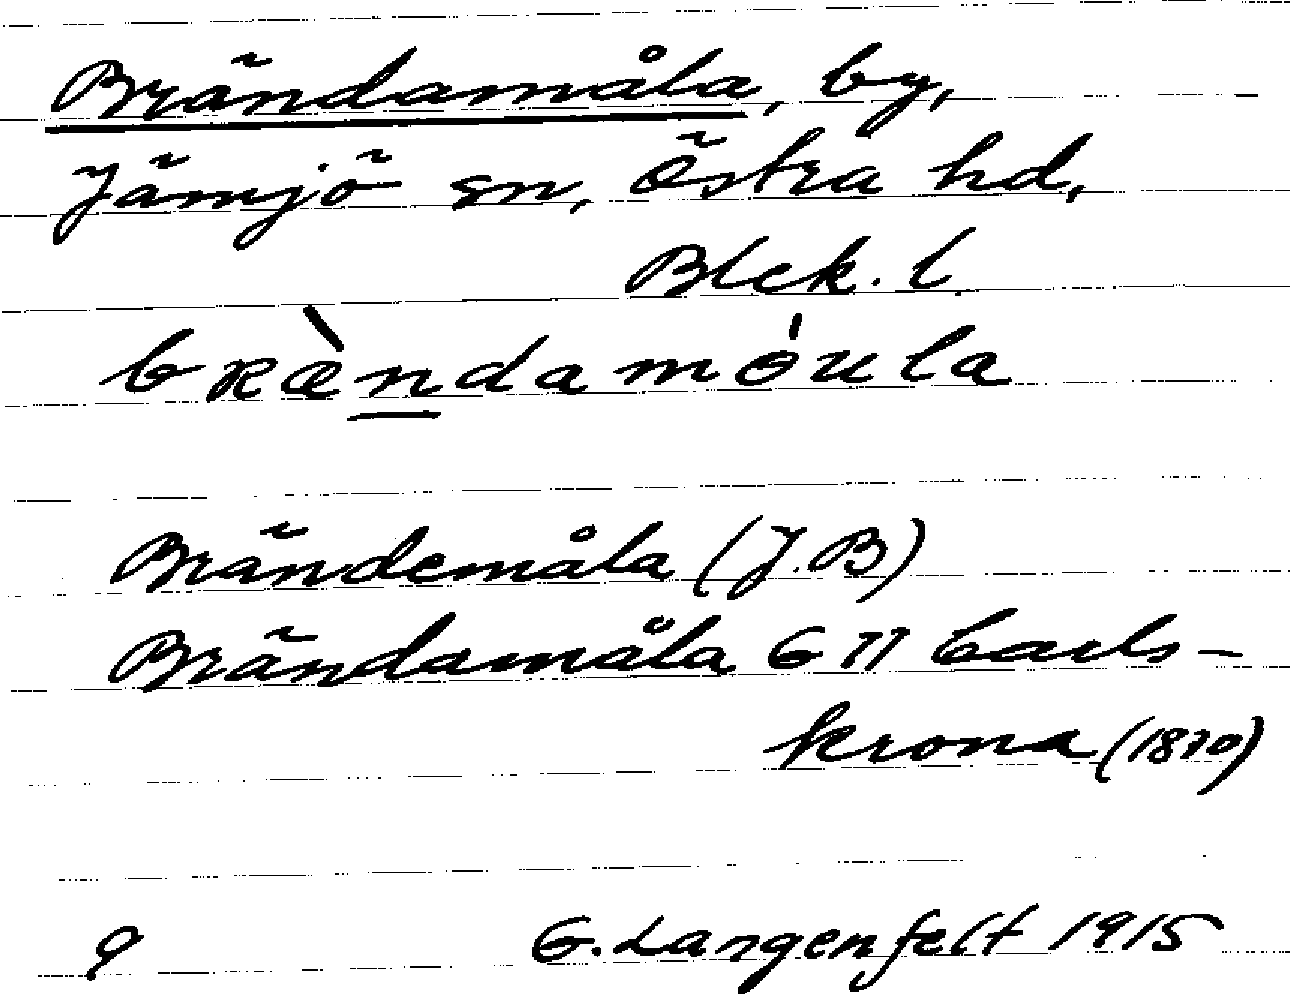 Brändamåla, by,
Jämjö sn, Östra hd,
Blek. l.
bʀæ̀ndamóula
Brändemåla (J.B)
Brändamåla G II Carls-
krona (1870)
9 G. Langenfelt 1915